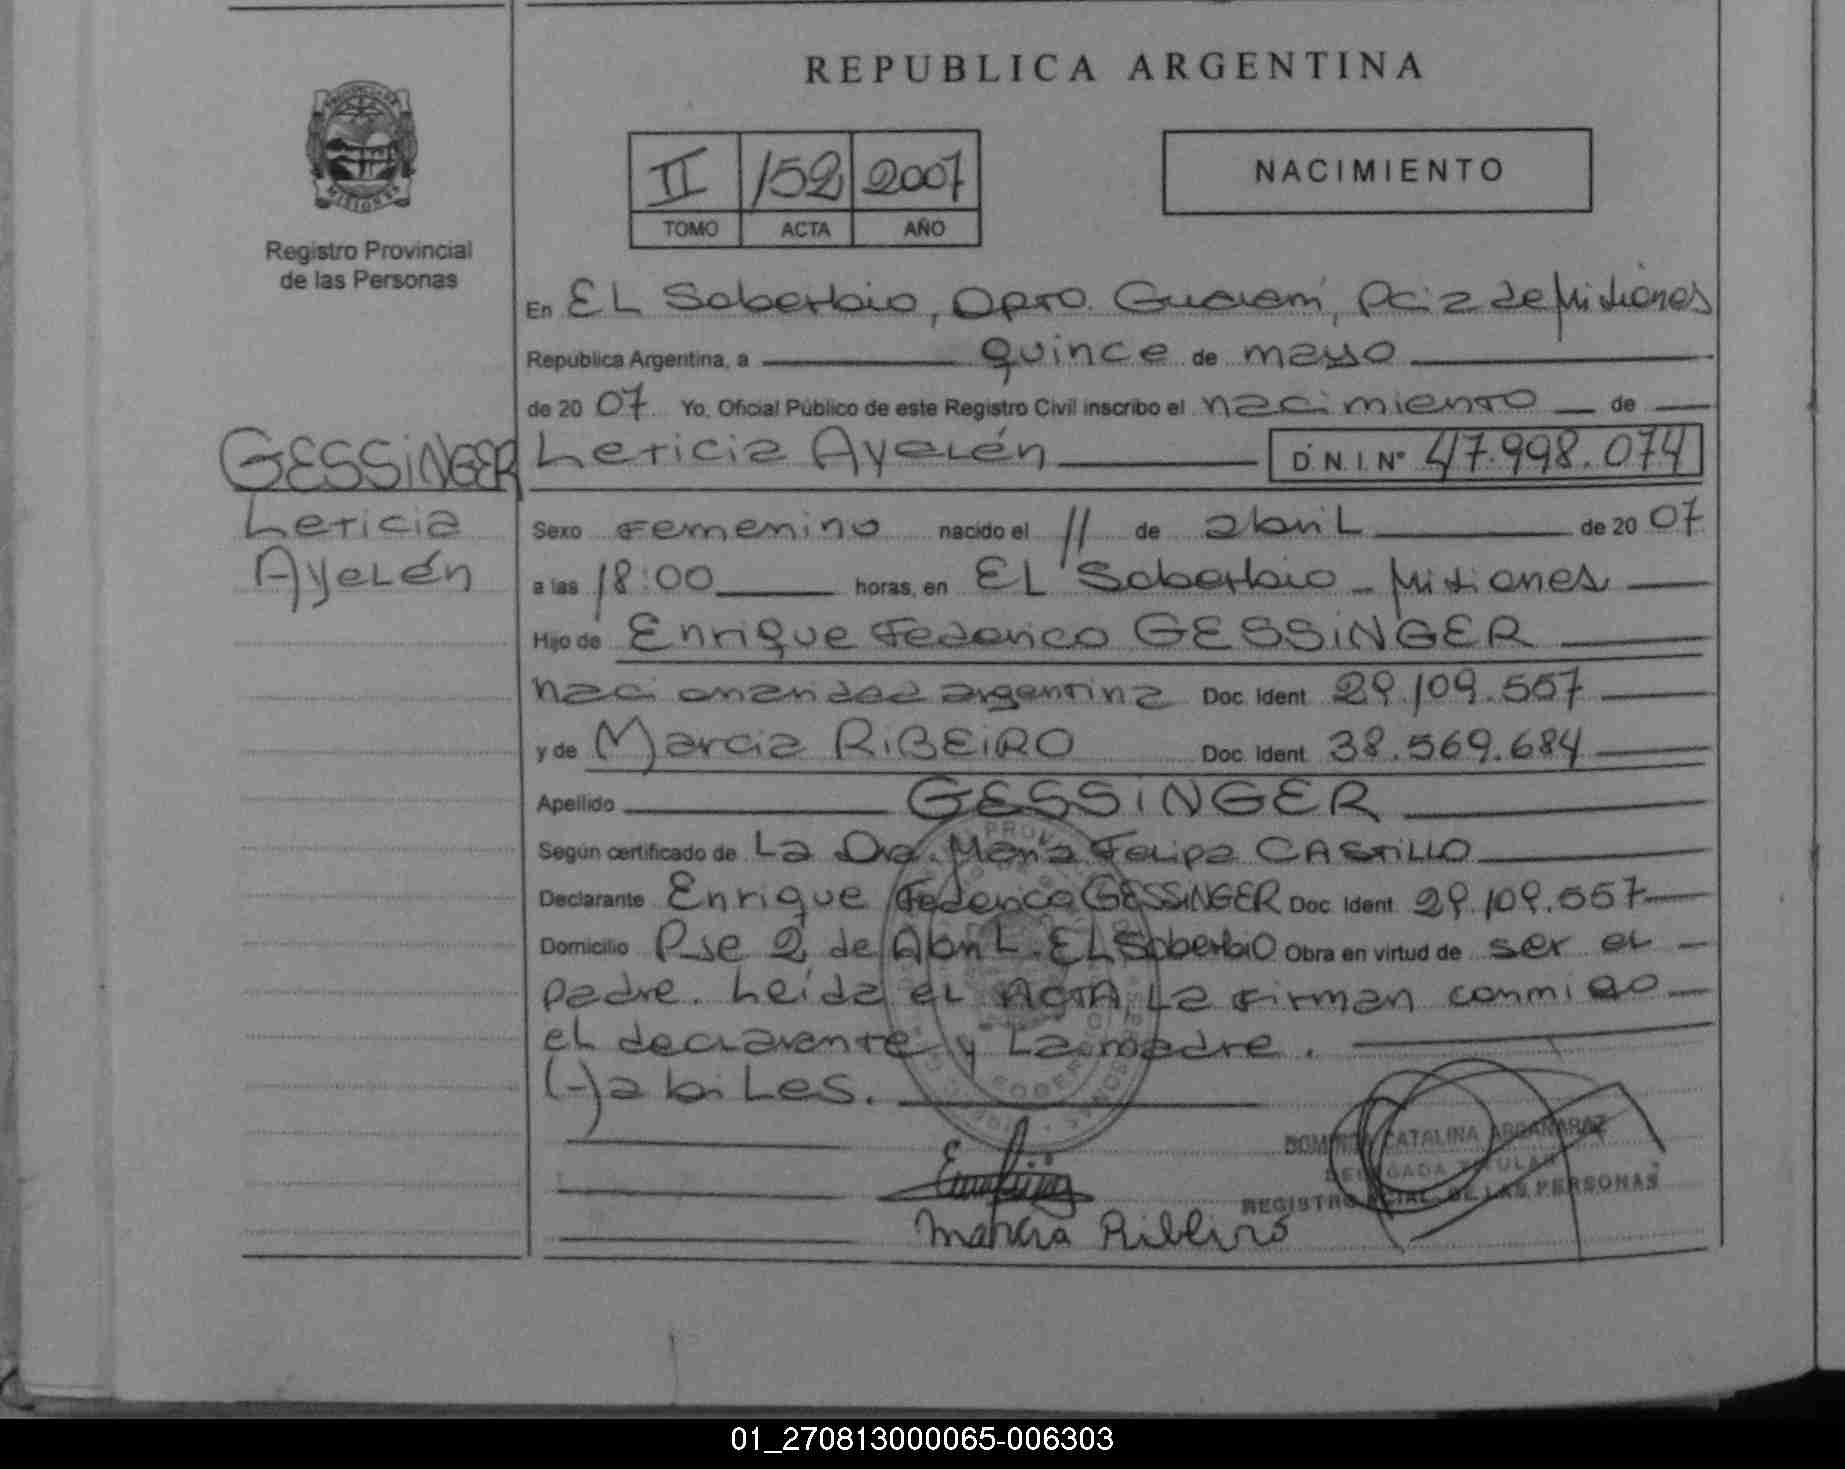 REPUBLICA ARGENTINA
II 152 2007
TOMO ACTA AÑO
NACIMIENTO
Registro Provincial
de las Personas
GESSiNGER
Leticia
Ayelén
En EL Soberbio, Dpto. Guaraní, Pcia de Misiones
Republica Argentina, a quince de mayo
de 20 07 Yo, Oficial Público de este Registro Civil inscribo el nacimiento de
Leticia Ayelén D.N.I.N° 47.998.074
Sexo Femenino nacido el 11 de abril de 20 07
a las 18:00 horas, en EL Soberbio - Misiones
Hijo de Enrique Federico GESSiNGER
argentina Doc. Ident. 29.109.557
y de Marcia RiBEiRO Doc. Ident. 38.569.684
Apellido GESSiNGER
Según certificado de La Dra. María Felipa CASTiLLO
Declarante Enrique Federico GESSiNGER Doc. Ident. 29.109.557
Domicilio Pje 2 de Abril - EL Soberbio Obra en virtud de ser el
padre. Leída el ACTA, La firman conmigo
el declarante y La madre.
Habiles.
Marcia Ribeiro
CATALINA
DELEGADA TITULAR
REGISTRO PCIAL. DE LAS PERSONAS
01_270813000065-006303